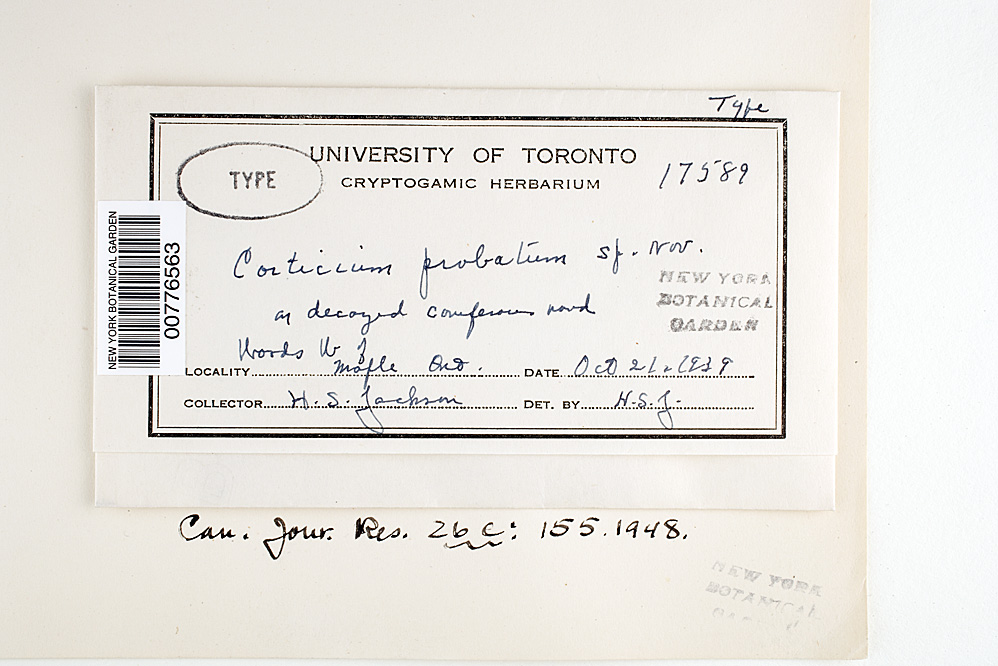 Type
UNIVERSITY OF TORONTO
CRYPTOGAMIC HERBARIUM
TYPE
17589
NEW YORK BOTANICAL GARDEN
00776563
Corticium probatum sp. nov.
NEW YORK
BOTANICAL
GARDEN
on decayed coniferous wood
Woods W of
LOCALITY Maple Ont. DATE Oct 21, 1939
COLLECTOR H. S. Jackson DET. BY H.S.J.
Can. Jour. Res. 26 C: 155. 1948.
NEW YORK
BOTANICAL
GARDEN